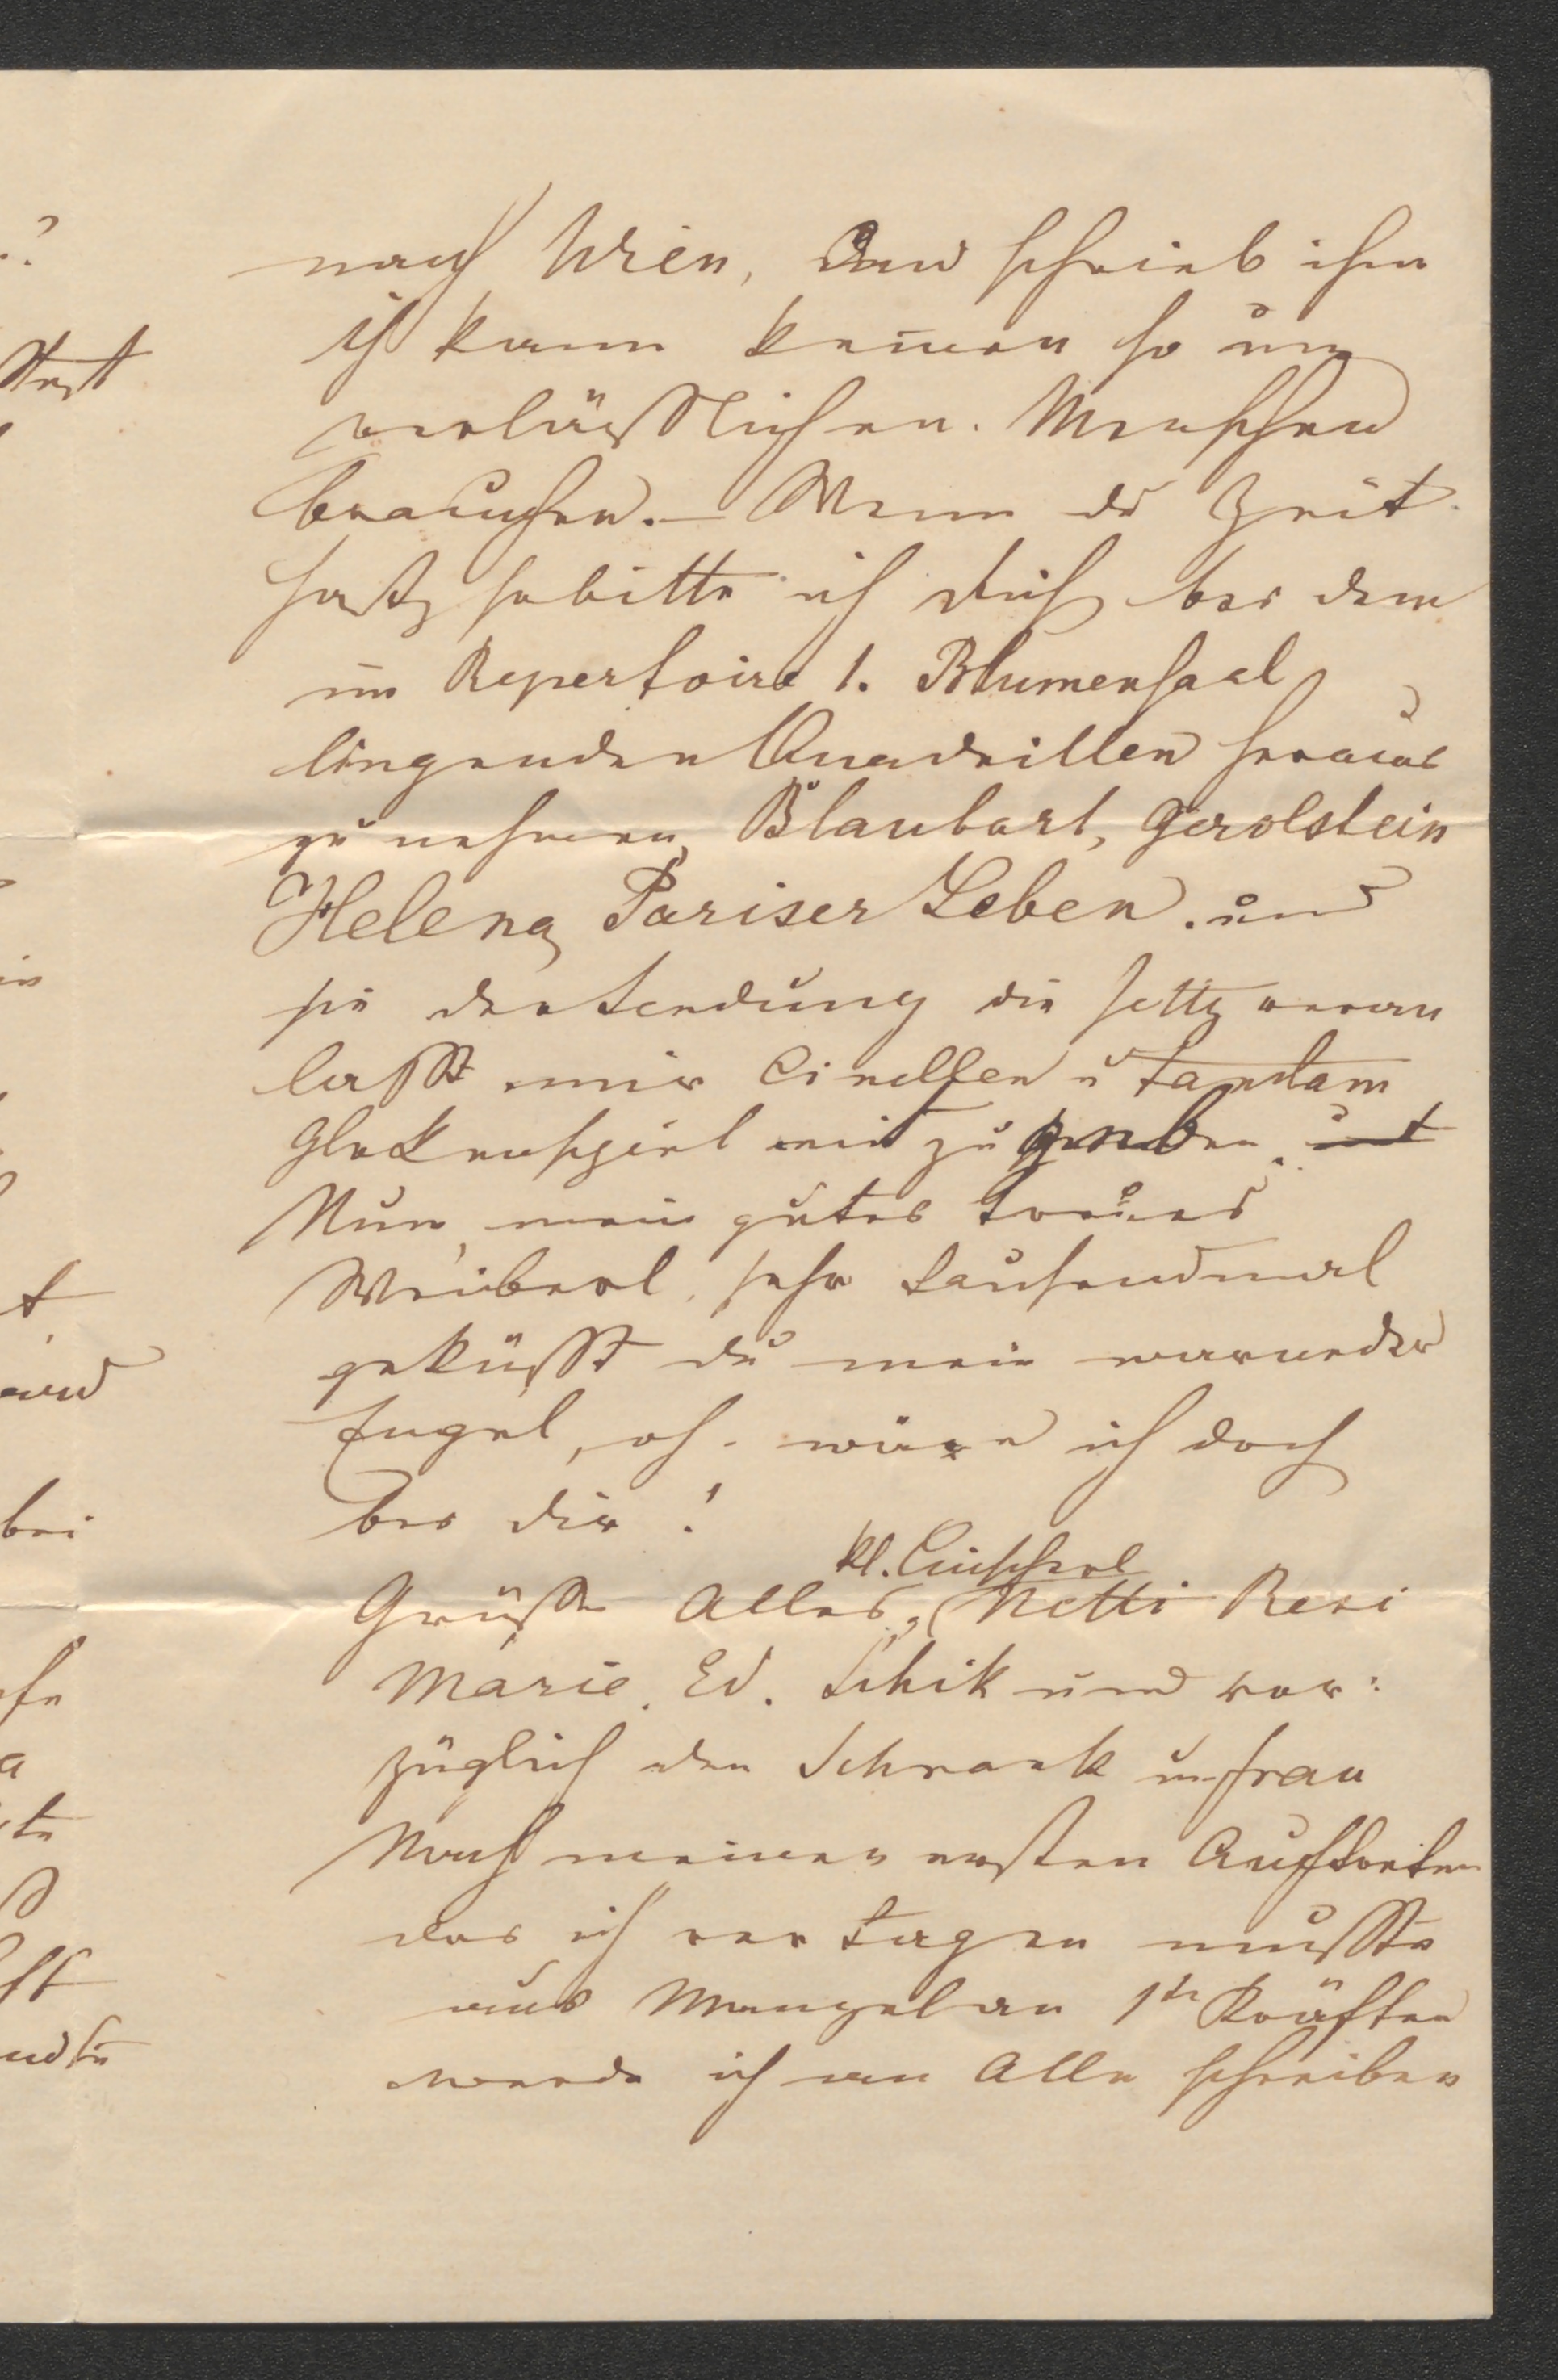 nach Wien, und schrieb ihm
ich kann keinen so un
verlässlichen Menschen
brauchen. – Wenn du Zeit
hast, so bitte ich dich bei dem
im Repertoire 1. Blumensaal
liegenden Quadrillen heraus
zu nehmen, Blaubart, Gerolstein
Helena, Pariser Leben. und
sie der Sendung die Jetty veran
lasst mir Cinellen u Tamtam
Glockenspiel mit zu geben.
Nun, mein gutes treues
Weiberl, sehr tausendmal
geküsst du mein
Engel, oh wäre ich doch
bei dir!
kl.
Grüsse Alles, Netti Resi
Marie. Ed. Schik und vor:
züglich den Schrank u Frau
Nach meinem ersten Auftreten
das ich vertagen musste
aus Mangel an 1ten Kräften
werde ich an Alle schreiben
bei